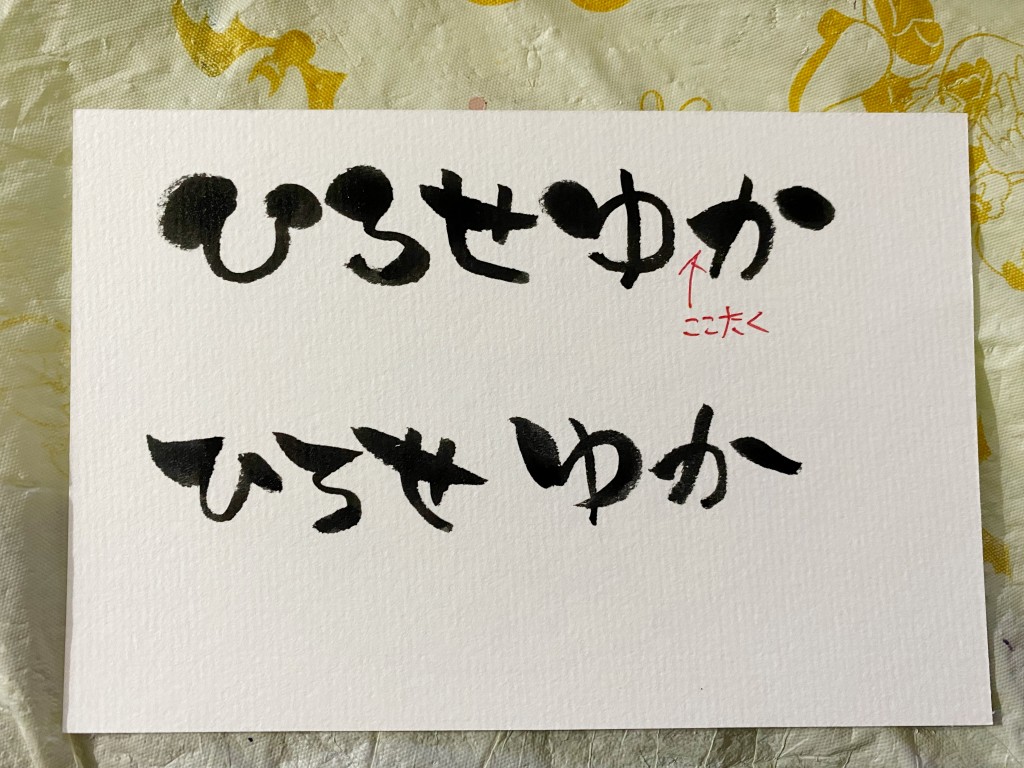 ひろせゆか
↑
ここたく
ひろせ ゆか